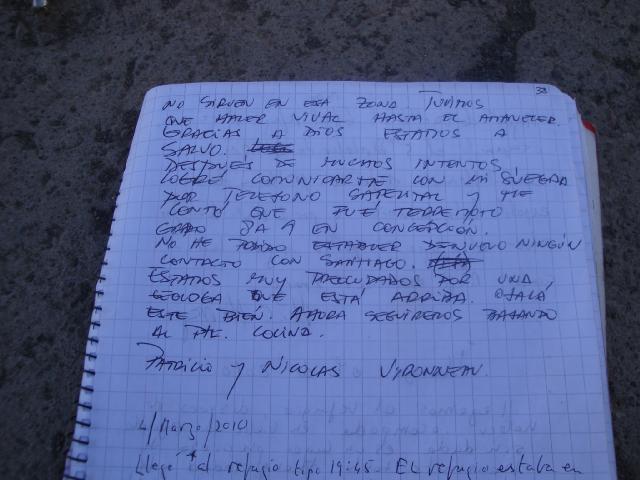 38
NO SIRVEN EN ESA ZONA. TUVIMOS
QUE HACER VIVAC HASTA EL AMANECER.
GRACIAS A DIOS ESTAMOS A
SALVO.
DESPUÉS DE MUCHOS INTENTOS
LOGRÉ COMUNICARME CON MI SUEGRA
POR TELEFONO SATELITAL Y ME
CONTO QUE FUE TERREMOTO
GRADO 8 A 9 EN CONCEPCIÓN.
NO HE PODIDO ESTABLECER DENUEVO NINGÚN
CONTACTO CON SANTIAGO.
ESTAMOS MUY PREOCUPADOS POR UNA
GEOLOGA QUE ESTÁ ARRIBA. OJALÁ
ESTE BIEN. AHORA SEGUIREMOS BAJANDO
AL PTE. COCINA.
PATRICIO Y NICOLAS
4/Marzo/2010
Llegé al refugio tipo 19:45. EL refugio estaba en